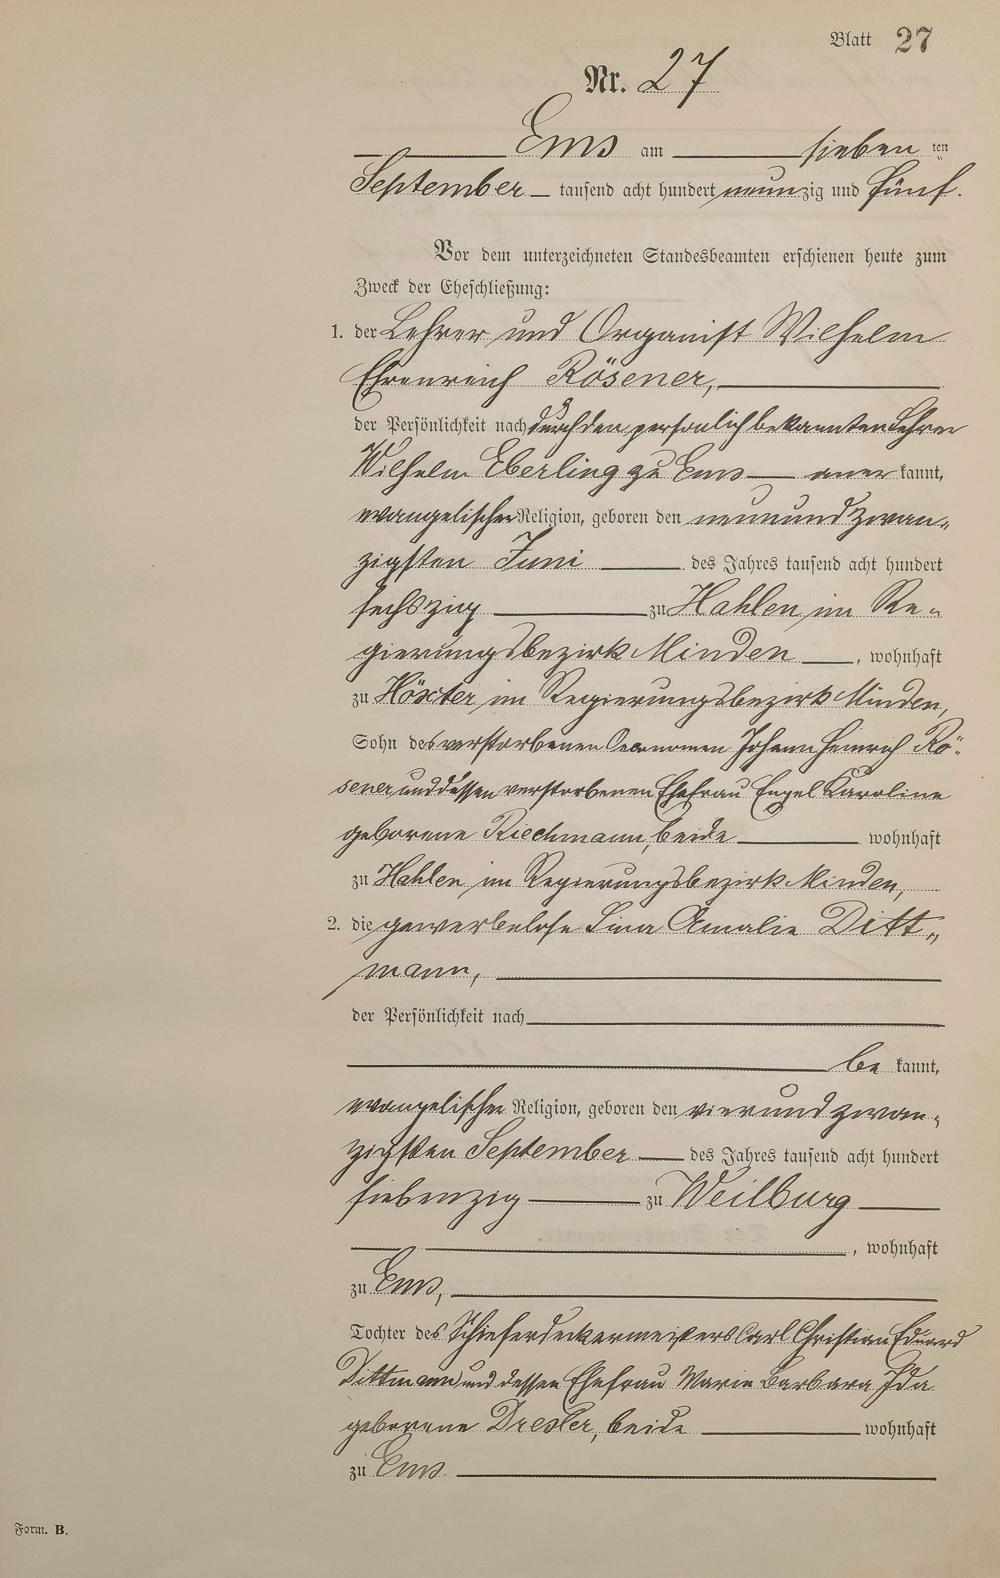 Blatt 27
Nr. 27
Ems am sieben ten
September tausend acht hundert neunzig und fünf.
Vor dem unterzeichneten Standesbeamten erschienen heute zum
Zweck der Eheschließung:
1. der Lehrer und Organist Wilhelm
Ehrenreich Rösener,
der Persönlichkeit nach durch den persönlich bekannten Lehrer
Wilhelm Eberling zu Ems anerkannt,
evangelischer Religion, geboren den neunundzwan-
zigsten Juni des Jahres tausend acht hundert
sechszig zu Hahlen im Re-
gierungsbezirk Minden, wohnhaft
zu Höxter im Regierungsbezirk Minden,
Sohn des verstorbenen Oekonomen Johann Heinrich Rö-
sener und dessen verstorbenen Ehefrau Engel Karoline
geborene Riechmann, beide wohnhaft
zu Hahlen im Regierungsbezirk Minden,
2. die gewerbelose Lina Amalie Ditt-
mann,
der Persönlichkeit nach
bekannt,
evangelischer Religion, geboren den vierundzwan-
zigsten September des Jahres tausend acht hundert
siebenzig zu Weilburg
, wohnhaft
zu Ems,
Tochter des Schieferdeckermeisters Carl Christian Eduard
Dittmann und dessen Ehefrau Marie Barbara Ida
geborene Dresler, beide wohnhaft
zu Ems
Form. B.